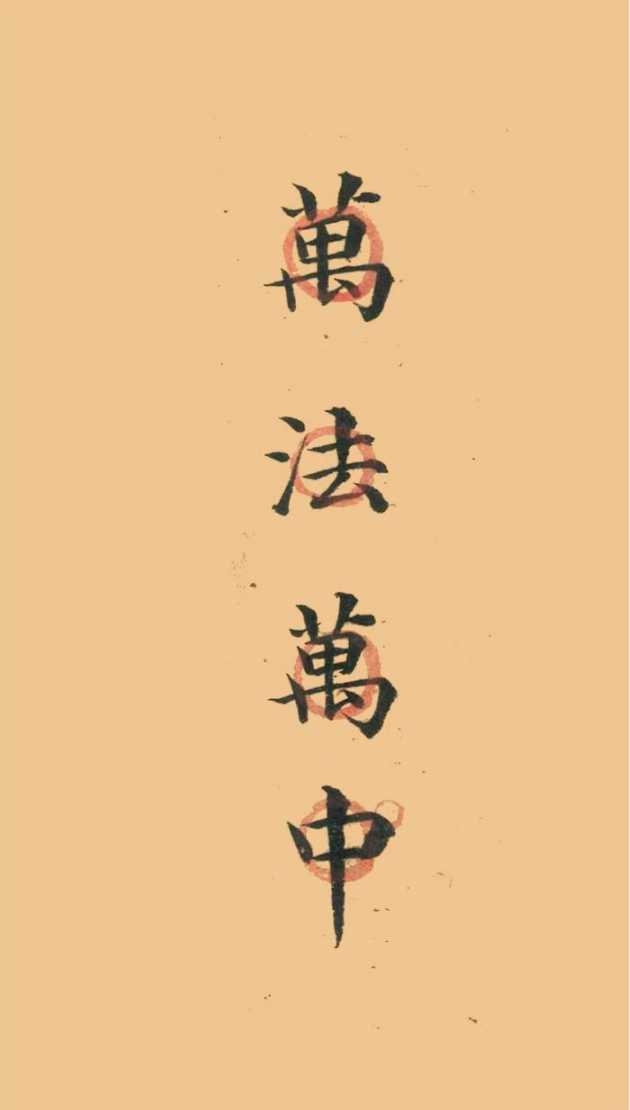 萬法萬中